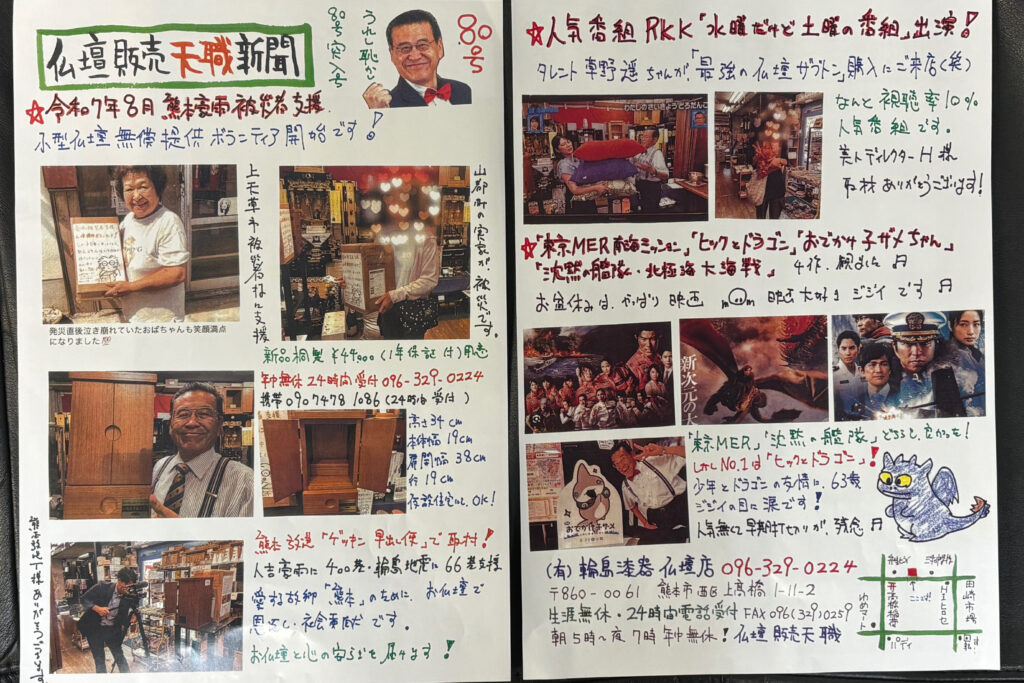 仏壇販売天職新聞
80号突入号
うれし恥かし
80号
☆令和7年8月 熊本豪雨 被災者支援
小型仏壇 無償提供 ボランティア開始です!
上天草市被災者様に支援
山都町の実家が、被災です。
発災直後泣き崩れていたおばちゃんも笑顔満点
になりました💯
新品桐製 ¥44,000(1年保証付)用意
年中無休24時間受付 096-329-0224
携帯 090 7478 1086(24時間受付)
高さ34cm
本体幅19cm
扉開幅38cm
行19cm
仮設住宅にも、OK!
熊本放送「ゲツキン早出し便」で取材!
人吉豪雨に400基・輪島地震に66基支援
愛する故郷「熊本」のために、お仏壇で
恩返し・社会貢献です。
お仏壇と心の安らぎを届けます!
熊本放送T様ありがとうございます
☆人気番組RKK「水曜だけど土曜の番組」出演!
タレント草野遥ちゃんが「最強の仏壇ザブトン」購入にご来店(笑)
わたしのさいきょうどうぐだんこ
なんと視聴率10%
人気番組です。
美人ディレクターH様
取材ありがとうございます!
☆「東京MER南海ミッション」「ヒックとドラゴン」「おでかけ子ザメちゃん」
「沈黙の艦隊・北極海大海戦」 4作、観ました♬
お盆休みは、やっぱり映画 m(_ _)m 映画大好きジジイです♬
新次元の
おでかけ子ザメ
「東京MER」「沈黙の艦隊」どちらも、良かった!
しかしNo.1は「ヒックとドラゴン」!
少年とドラゴンの友情に、63歳
ジジイの目に涙です!
人気無くて早期打切りが、残念♬
(有)輪島漆器仏壇店 096-329-0224
〒860-0061 熊本市西区上高橋1-11-2
生涯無休・24時間電話受付 FAX096(329)0259
朝5時〜夜7時 年中無休! 仏壇販売天職
高橋稲荷
ここです!
田崎市場
ゆめマート